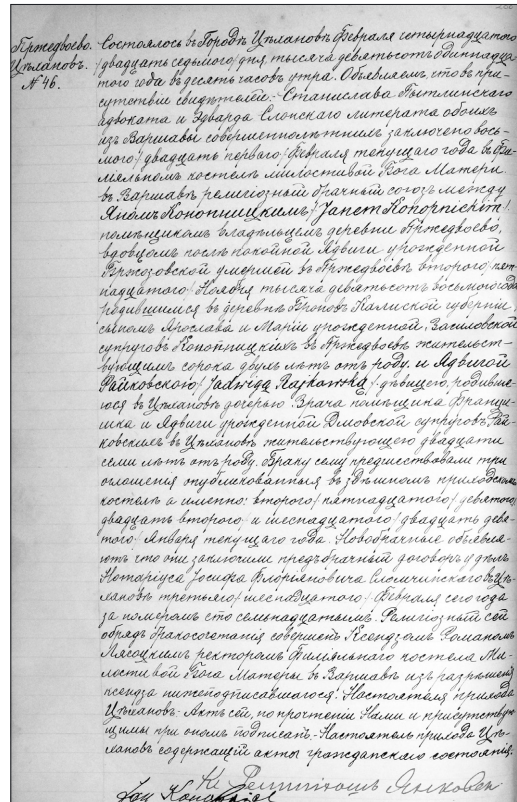 Пржедвоево.
Цѣхановъ.
№ 46.
Состоялось въ Городѣ Цѣхановѣ Февраля четырнадцатого
/двадцать седьмого/ дня, тысяча девятьсотъ одиннадца-
того года въ десять часовъ утра. Объявляемъ, что въ при-
сутствіи свидѣтелей: Станислава Пытлинскаго
адвоката и Эдварда Слонскаго литерата обоихъ
изъ Варшавы совершеннолѣтнихъ заключенъ вось-
мого /двадцать перваго/ Февраля текущаго года въ Фи-
ліяльномъ костелѣ милостивой Бога Матери
въ Варшавѣ религіозный брачный союзъ между
Яномъ Конопницкимъ /Janem Konopnickim/
помѣщикомъ владѣльцемъ деревни Пржедвоево,
вдовцомъ послѣ покойной Ядвиги урожденной
Бржозовской умершей въ Пржедвоевѣ второго /пят-
надцатого/ Ноября тысяча девятьсотъ восьмого года
родившимся въ деревнѣ Броновъ Калишской губерніи,
сыномъ Ярослава и Маріи урожденной Василовской
супруговъ Конопницкихъ въ Пржедвоевѣ жительст-
вующимъ сорока двухъ лѣтъ отъ роду, и Ядвигой
Райковской /Jadwigą Rajkowską/ дѣвицею, родивше-
юся въ Цѣхановѣ дочерью Врача помѣщика Франци-
шка и Ядвиги урожденной супруговъ Рай-
ковскихъ въ Цѣхановѣ жительствующего двадцати
семи лѣтъ отъ роду. Браку сему предшествовали три
оглашенія опубликованныя въ здѣшномъ приходскомъ
костелѣ а именно: второго /пятнадцатого/ девятого/
двадцать второго/ и шеснадцатого /двадцать девя-
того/ Января текущаго года. Новобрачные объявля-
ютъ что они заключили предъбрачный договоръ у
Нотаріуса Іосифа Флоріяновича въ Цѣ-
хановѣ третьяго /шеснадцатого/ Февраля сего года
за номеромъ сто семнадцатымъ. Религіозный сей
обрядъ бракосочетанія совершенъ Ксендзомъ Романомъ
ректоромъ Филіяльнаго костела Ми-
лостивой Бога Матеры въ Варшавѣ изъ разрышенія
ксендза нижеподписавшагося Настоятеля прихода
Цѣхановъ. Актъ сей, по прочтеніи Нами и присутствую-
щимы при ономъ подписанъ. Настоятель прихода Цѣ-
хановъ содержащій акты гражданскаго состоянія:
Кс.
Jan